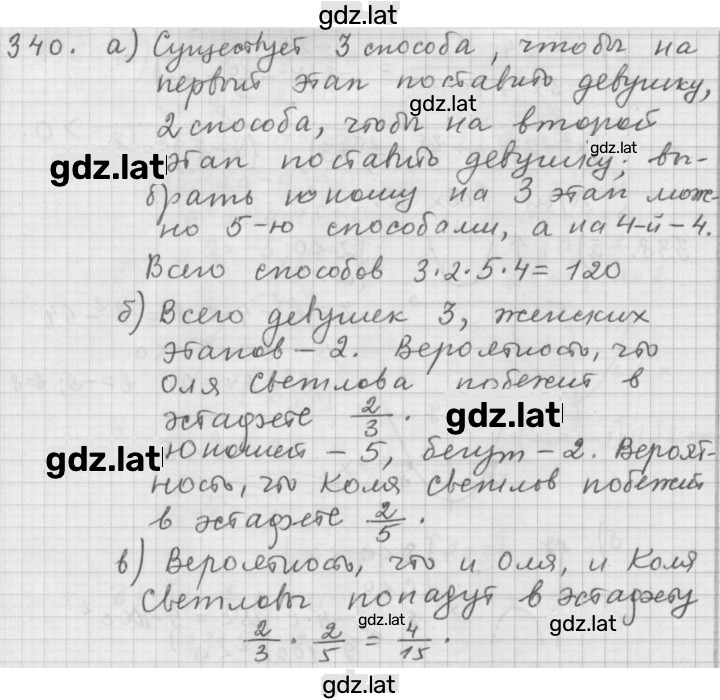 gdz.lat
340. а) Существует 3 способа, чтобы на
первый этап поставить девушку,
gdz.lat
2 способа, чтобы на второй
gdz.lat
gdz.lat этап поставить девушку; вы-
брать юношу на 3 этап мож-
но 5-ю способами, а на 4-й – 4.
Всего способов 3·2·5·4 = 120
б) Всего девушек 3, женских
этапов – 2. Вероятность, что
Оля Светлова побежит в
эстафете 2/3.
gdz.lat
gdz.lat Юношей – 5, бегут – 2. Вероят-
ность, что Коля Светлов побежит
в эстафете 2/5.
в) Вероятность, что и Оля, и Коля
Светловы попадут в эстафету
gdz.lat gdz.lat
2/3 · 2/5 = 4/15.
gdz.lat